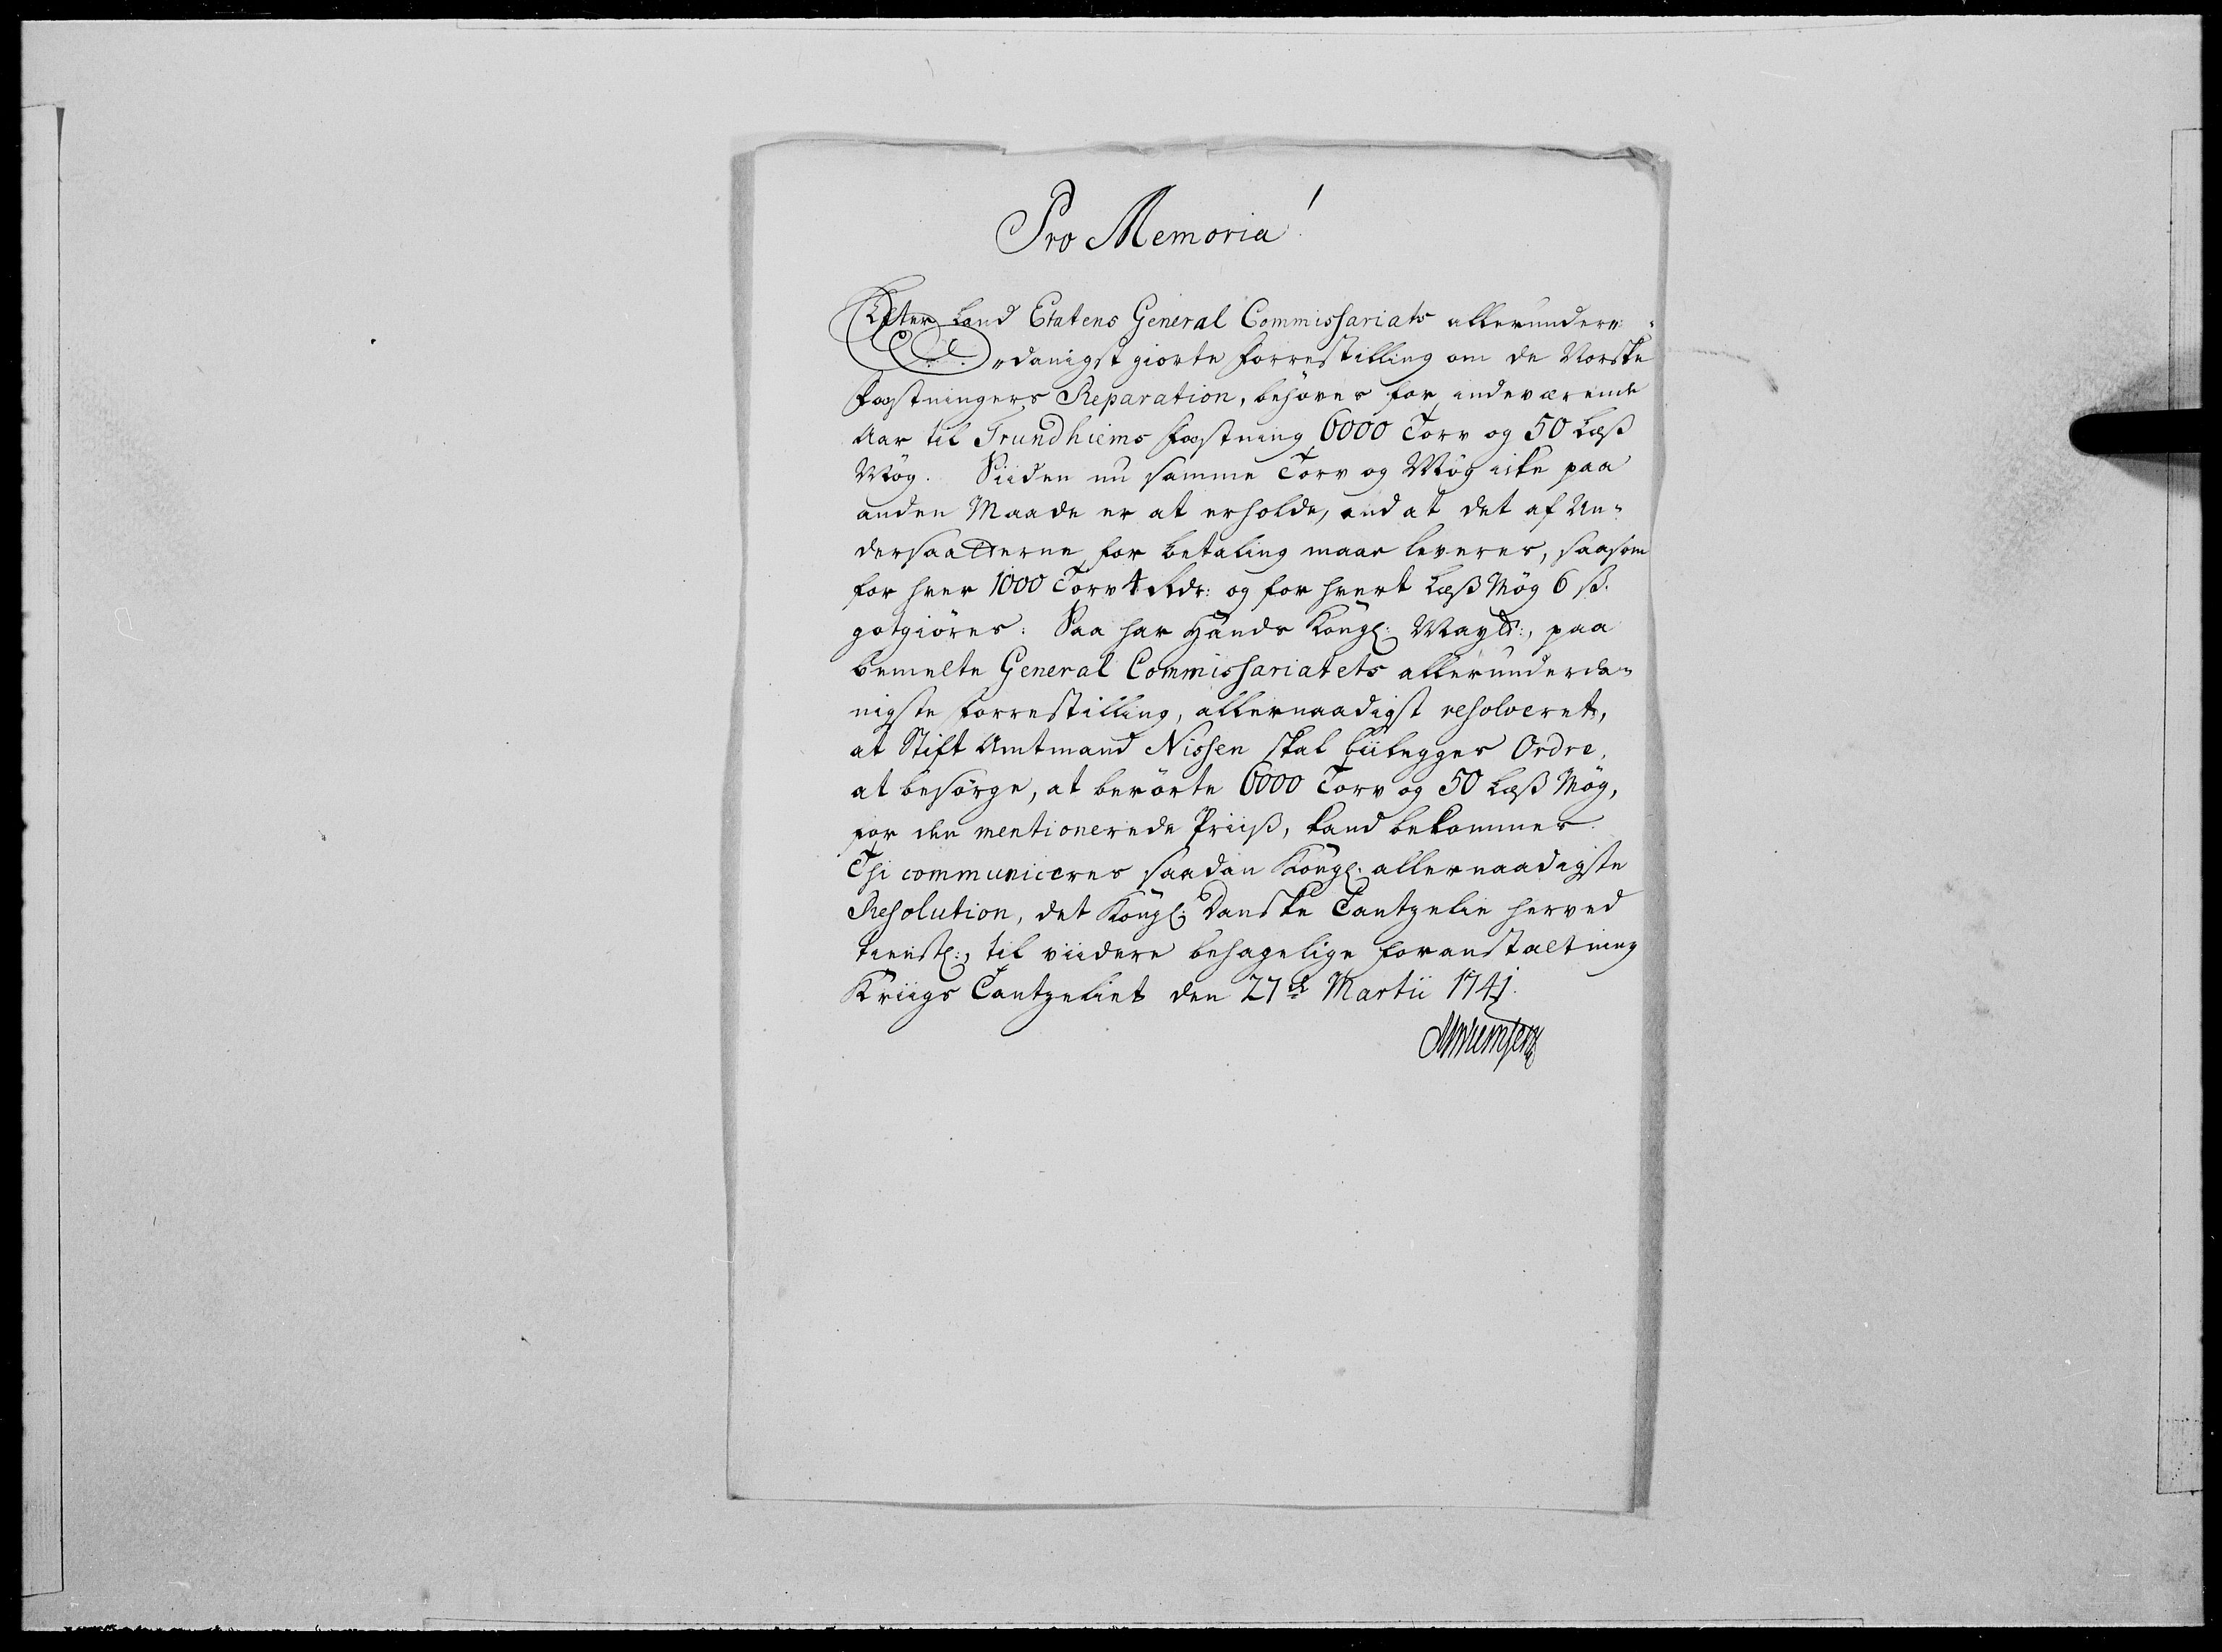 Pro Memoria!
Efter Land Etatens General Commissariats allerunder„
„danigst giorte Forrestilling om de Norske
Fæstningers Reparation, behöves for indeværende
Aar til Trundhiems Fæstning 6000 Torv og 50 Læß
Møg. Siiden nu samme Torv og Møg icke paa
anden Maade er at erholde, end at det af Un„
dersaatterne for betaling maae leveres, saasom
for hver 1000 Torv 4 Rdr: og for hvert Læß Møg 6 ß.
gotgiöres: Saa har Hands Kongl: Maytt:, paa
bemelte General Commissariatets allerunderda„
nigste Forrestilling, allernaadigst resolveret,
at Stift Amtmand Nissen skal biilegges Ordre,
at besörge, at berörte 6000 Torv og 50 Læß Møg,
for den mentionerede Priiß, kand bekommes.
Thi communiceres saadan Kongl: allernaadigste
Resolution, det Kongl: Danske Cantzelie herved
tienstl:, til viidere behagelige foranstaltning
Kriigs Cantzeliet den 27de Martii 1741.